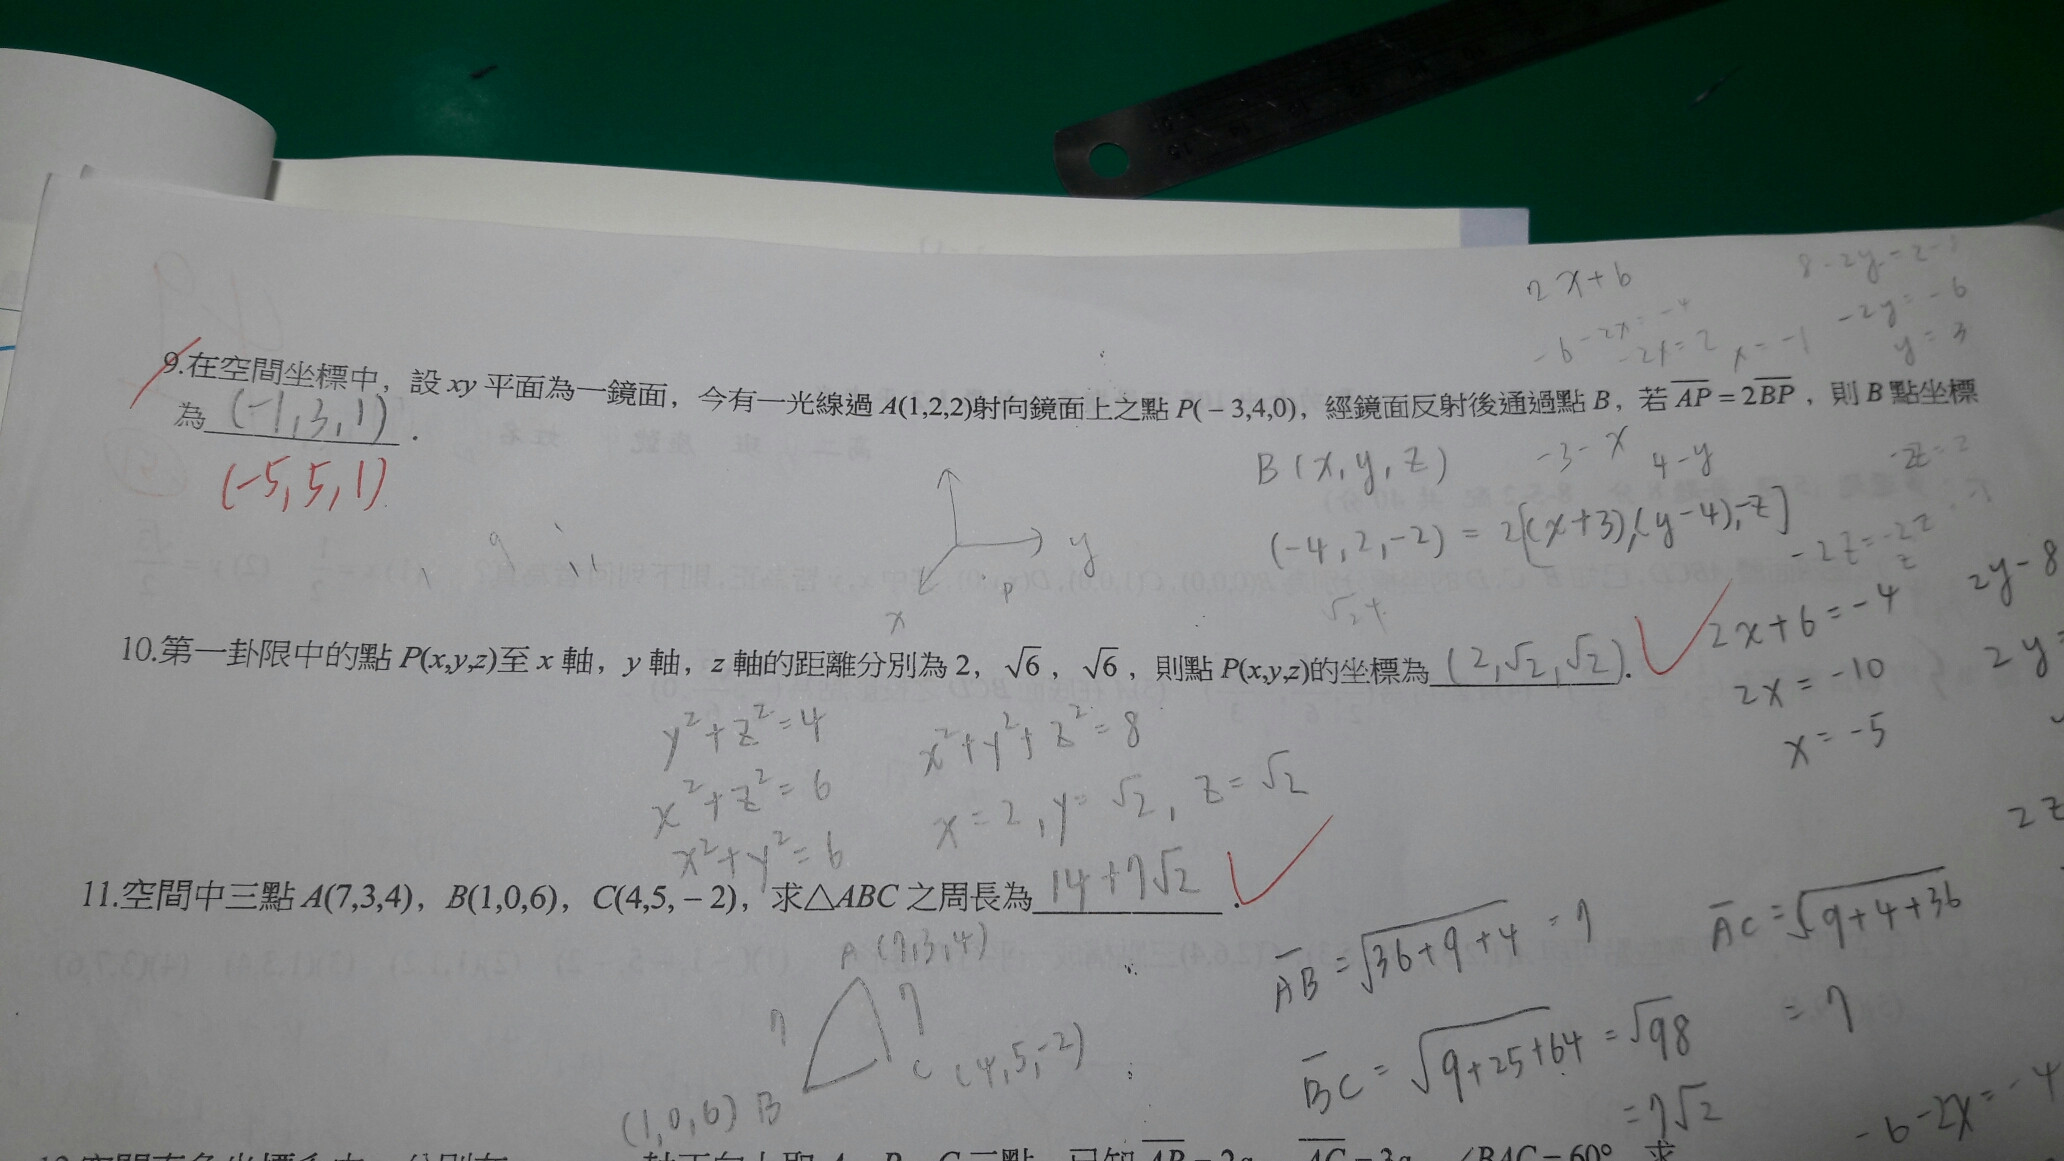 9.在空間坐標中，設 xy 平面為一鏡面，今有一光線過 A(1,2,2)射向鏡面上之點 P(－3,4,0)，經鏡面反射後通過點 B，若 AP = 2BP，則 B 點坐標
為 (-1,3,1) .
(-5,5,1)
2x+6
-6-2x=-4
-2x=2 x=-1
-2y=-6
y=3
B(x,y,z) -3-x 4-y
(-4,2,-2) = 2[(x+3),(y-4),-z]
y
x
p
2x+6=-4
2x=-10
x=-5
2y-8
10.第一卦限中的點 P(x,y,z)至 x 軸，y 軸，z 軸的距離分別為 2，√6，√6，則點 P(x,y,z)的坐標為 (2,√2,√2).
y²+z²=4 x²+y²+z²=8
x²+z²=6 x=2, y=√2, z=√2
x²+y²=6
11.空間中三點 A(7,3,4)，B(1,0,6)，C(4,5,－2)，求△ABC 之周長為 14+7√2 .
A (7,3,4)
7 7
C (4,5,-2)
(1,0,6) B
AB=√36+9+4 =7
AC=√9+4+36
=7
BC=√9+25+64 =√98
=7√2
-6-2x=-4